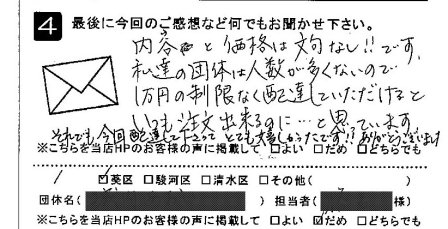 4 最後に今回のご感想など何でもお聞かせ下さい。
内容と価格は文句なし!!です。
私達の団体は人数が多くないので
1万円の制限なく配達していただけると
いつも注文出来るのに…と思ています。
それでも今回配達して下さって とても嬉しかったです!! ありがとうございます
※こちらを当店HPのお客様の声に掲載して □よい □だめ □どちらでも
☑葵区 □駿河区 □清水区 □その他( )
団体名( ) 担当者( 様)
※こちらを当店HPのお客様の声に掲載して □よい ☑だめ □どちらでも